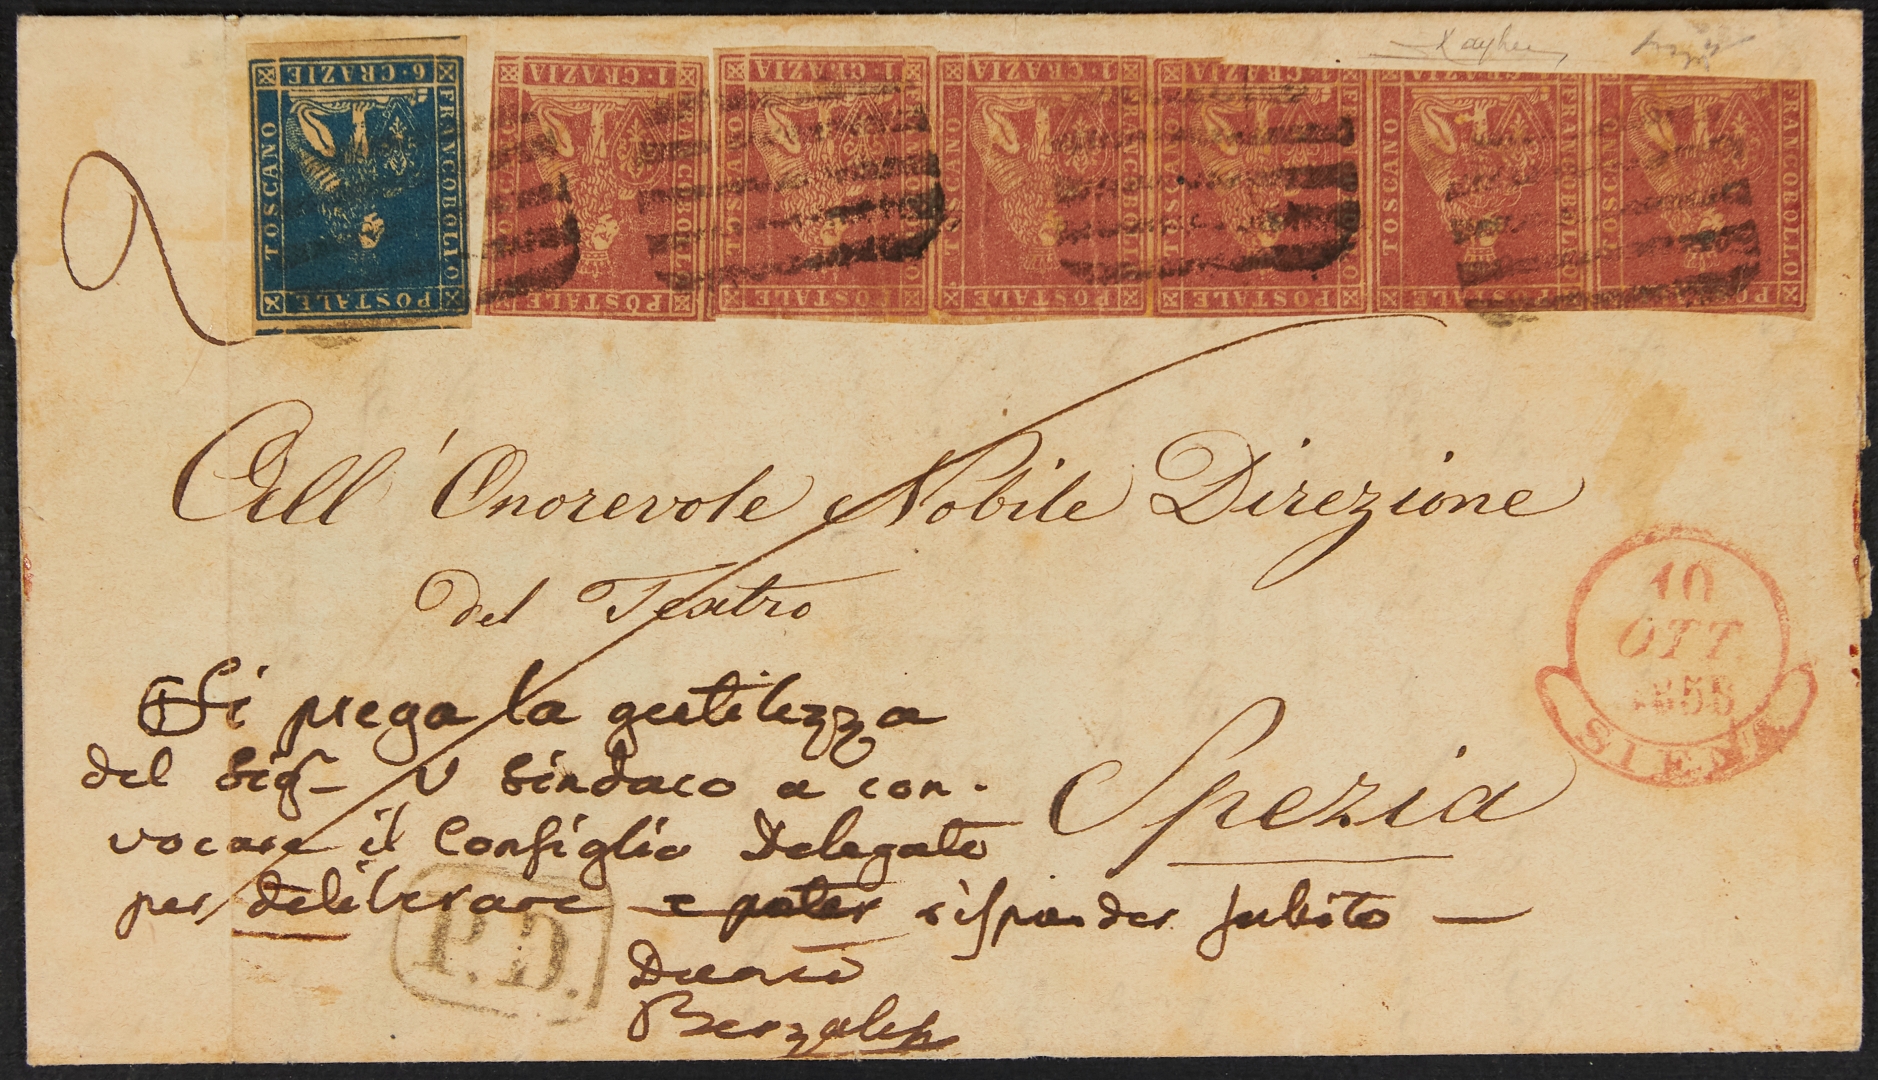 6·CRAZIE
FRANCOBOLLO
TOSCANO
POSTALE
1·CRAZIA
TOSCANO
FRANCOBOLLO
POSTALE
1·CRAZIA
TOSCANO
POSTALE
1·CRAZIA
TOSCANO
FRANCOBOLLO
POSTALE
1·CRAZIA
FRANCOBOLLO
POSTALE
CRAZIA
TOSCANO
FRANCOBOLLO
POSTALE
CRAZIA
TOSCANO
FRANCOBOLLO
POSTALE
All' Onorevole Nobile Direzione
del Teatro
Spezia
10
OTT
1858
SIENA
Si prega la gentilezza
del Sigr V Sindaco a con-
vocare il Consiglio Delegato
per deliberare e poter risponder subito —
P.D.